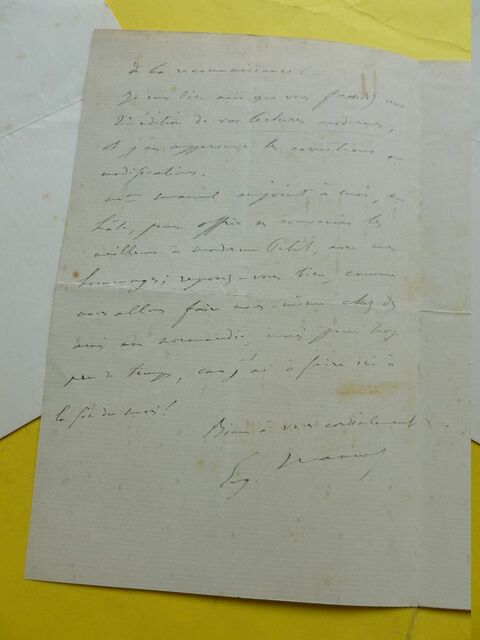 de la reconnaissance!
Je suis bien aise que vous fassiez une
2e édition de vos lectures modernes,
et j'en approuve les corrections ou
modifications.
Mme Manuel se joint à moi, en
hâte, pour offrir ses souvenirs les
meilleurs à madame Petit, avec mes
hommages; reposez-vous bien, comme
nous allons faire nous-même chez des
amis en normandie mais pour trop
peu de temps, car j'ai à faire ici à
la fin du mois!
Bien à vous cordialement
Eug. Manuel